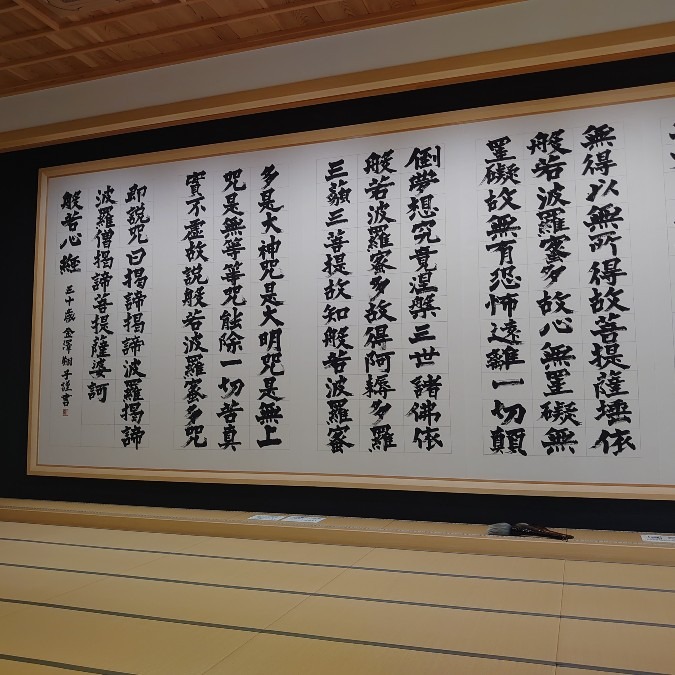 無得以無所得故菩提薩埵依
般若波羅蜜多故心無罣礙無
罣礙故無有恐怖遠離一切顛
倒夢想究竟涅槃三世諸佛依
般若波羅蜜多故得阿耨多羅
三藐三菩提故知般若波羅蜜
多是大神咒是大明咒是無上
咒是無等等咒能除一切苦真
實不虛故説般若波羅蜜多咒
即説咒曰揭諦揭諦波羅揭諦
波羅僧揭諦菩提薩婆訶
般若心經 三十歳 金澤翔子謹書